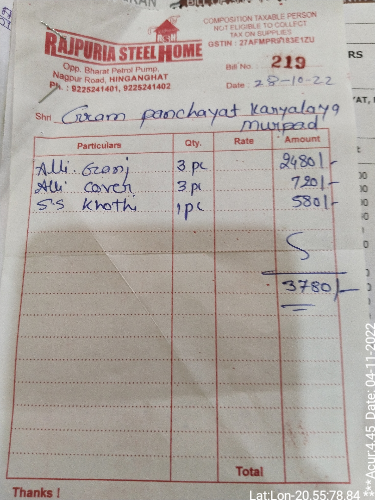 COMPOSITION TAXABLE PERSON
NOT ELIGIBLE TO COLLECT
TAX ON SUPPLIES
RAJPURIA STEEL HOME
GSTIN : 27AFMPR9783E1ZU
Opp. Bharat Petrol Pump,
Nagpur Road, HINGANGHAT
Ph. : 9225241401, 9225241402
Bill No. : 219
Date : 28-10-22
Shri Gram panchayat Karyalaya
murpad
Particulars Qty. Rate Amount
Alli Ganj 3 pc 2480/-
Alli cover 3 pc 720/-
S.S Khothi 1 pc 580/-
3780/-
Total
Thanks !
RS
Lat:Lon-20.55:78.84
**Acur:4.45 Date: 04-11-2022